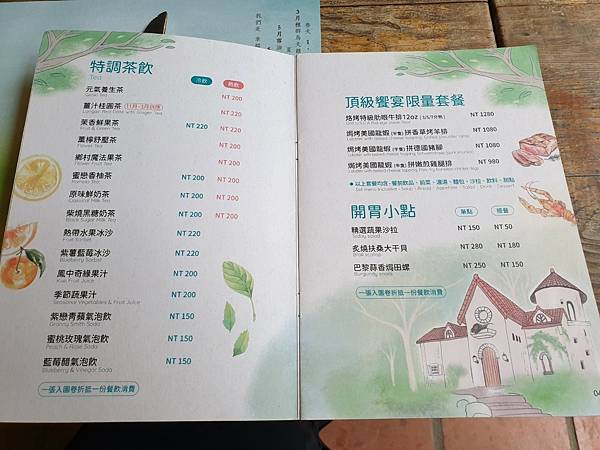 春天
特調茶飲
Tea
冷飲 熱飲
元氣養生茶 NT 200
薑汁桂圓茶 (11月-3月供應) NT 200
Longan Red Date with Ginger Tea
茉香鮮果茶 NT 220 NT 220
Fruit & Green Tea
薰檸舒壓茶 NT 200
鄉村魔法果茶 NT 200
蜜戀香柚茶 NT 200 NT 200
Pomelo Tea
原味鮮奶茶 NT 200 NT 200
Classical Milk Tea
柴燒黑糖奶茶 NT 200 NT 200
Black Sugar Milk Tea
熱帶水果冰沙 NT 220
Fruit Sorbet
紫薯藍莓冰沙 NT 220
Blueberry Sorbet
鳳中奇緣果汁 NT 200
Kiwi Fruit Juice
季節蔬果汁 NT 200
Seasonal Vegetables & Fruit Juice
紫戀青蘋氣泡飲 NT 150
Granny Smith Soda
蜜桃玫瑰氣泡飲 NT 150
Peach & Rose Soda
藍莓醋氣泡飲 NT 150
Blueberry & Vinegar Soda
一張入園卷折抵一份餐飲消費
頂級饗宴限量套餐
爐烤特級肋眼牛排12oz (3/5/7分熟) NT 1280
焗烤美國龍蝦(半隻)拼香草烤羊排 NT 1080
焗烤美國龍蝦(半隻)拼德國豬腳 NT 1080
焗烤美國龍蝦(半隻)拼嫩煎雞腿排 NT 980
●以上套餐均含，餐前飲品、前菜、濃湯、麵包、沙拉、飲料、甜點
Set menu included • Soup、Bread、Appetizer、Salad、Drink、Dessert
開胃小點
單點 搭餐
精選蔬果沙拉 NT 150 NT 50
Today Salad
炙燒扶桑大干貝 NT 280 NT 180
Broil scallop
巴黎蒜香焗田螺 NT 250 NT 150
Burgundy snails
一張入園卷折抵一份餐飲消費
04